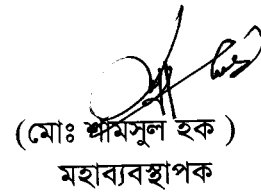 (মোঃ শামসুল হক )
মহাব্যবস্থাপক